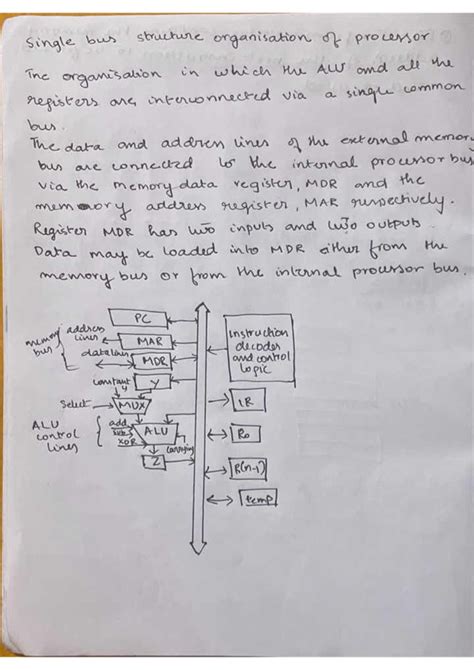 Single bus structure organisation of processor
The organisation in which the ALU and all the
registers are interconnected via a single common
bus.
The data and address lines of the external memory
bus are connected to the internal processor bus
via the memory data register, MDR and the
memory address register, MAR respectively.
Register MDR has two inputs and two outputs.
Data may be loaded into MDR either from the
memory bus or from the internal processor bus.
PC
memory bus
address lines
MAR
data lines
MDR
constant 4
Y
Select
MUX
ALU control lines
add
XOR
ALU
Z
Instruction
decoder
and control
logic
IR
R0
R(n-1)
temp